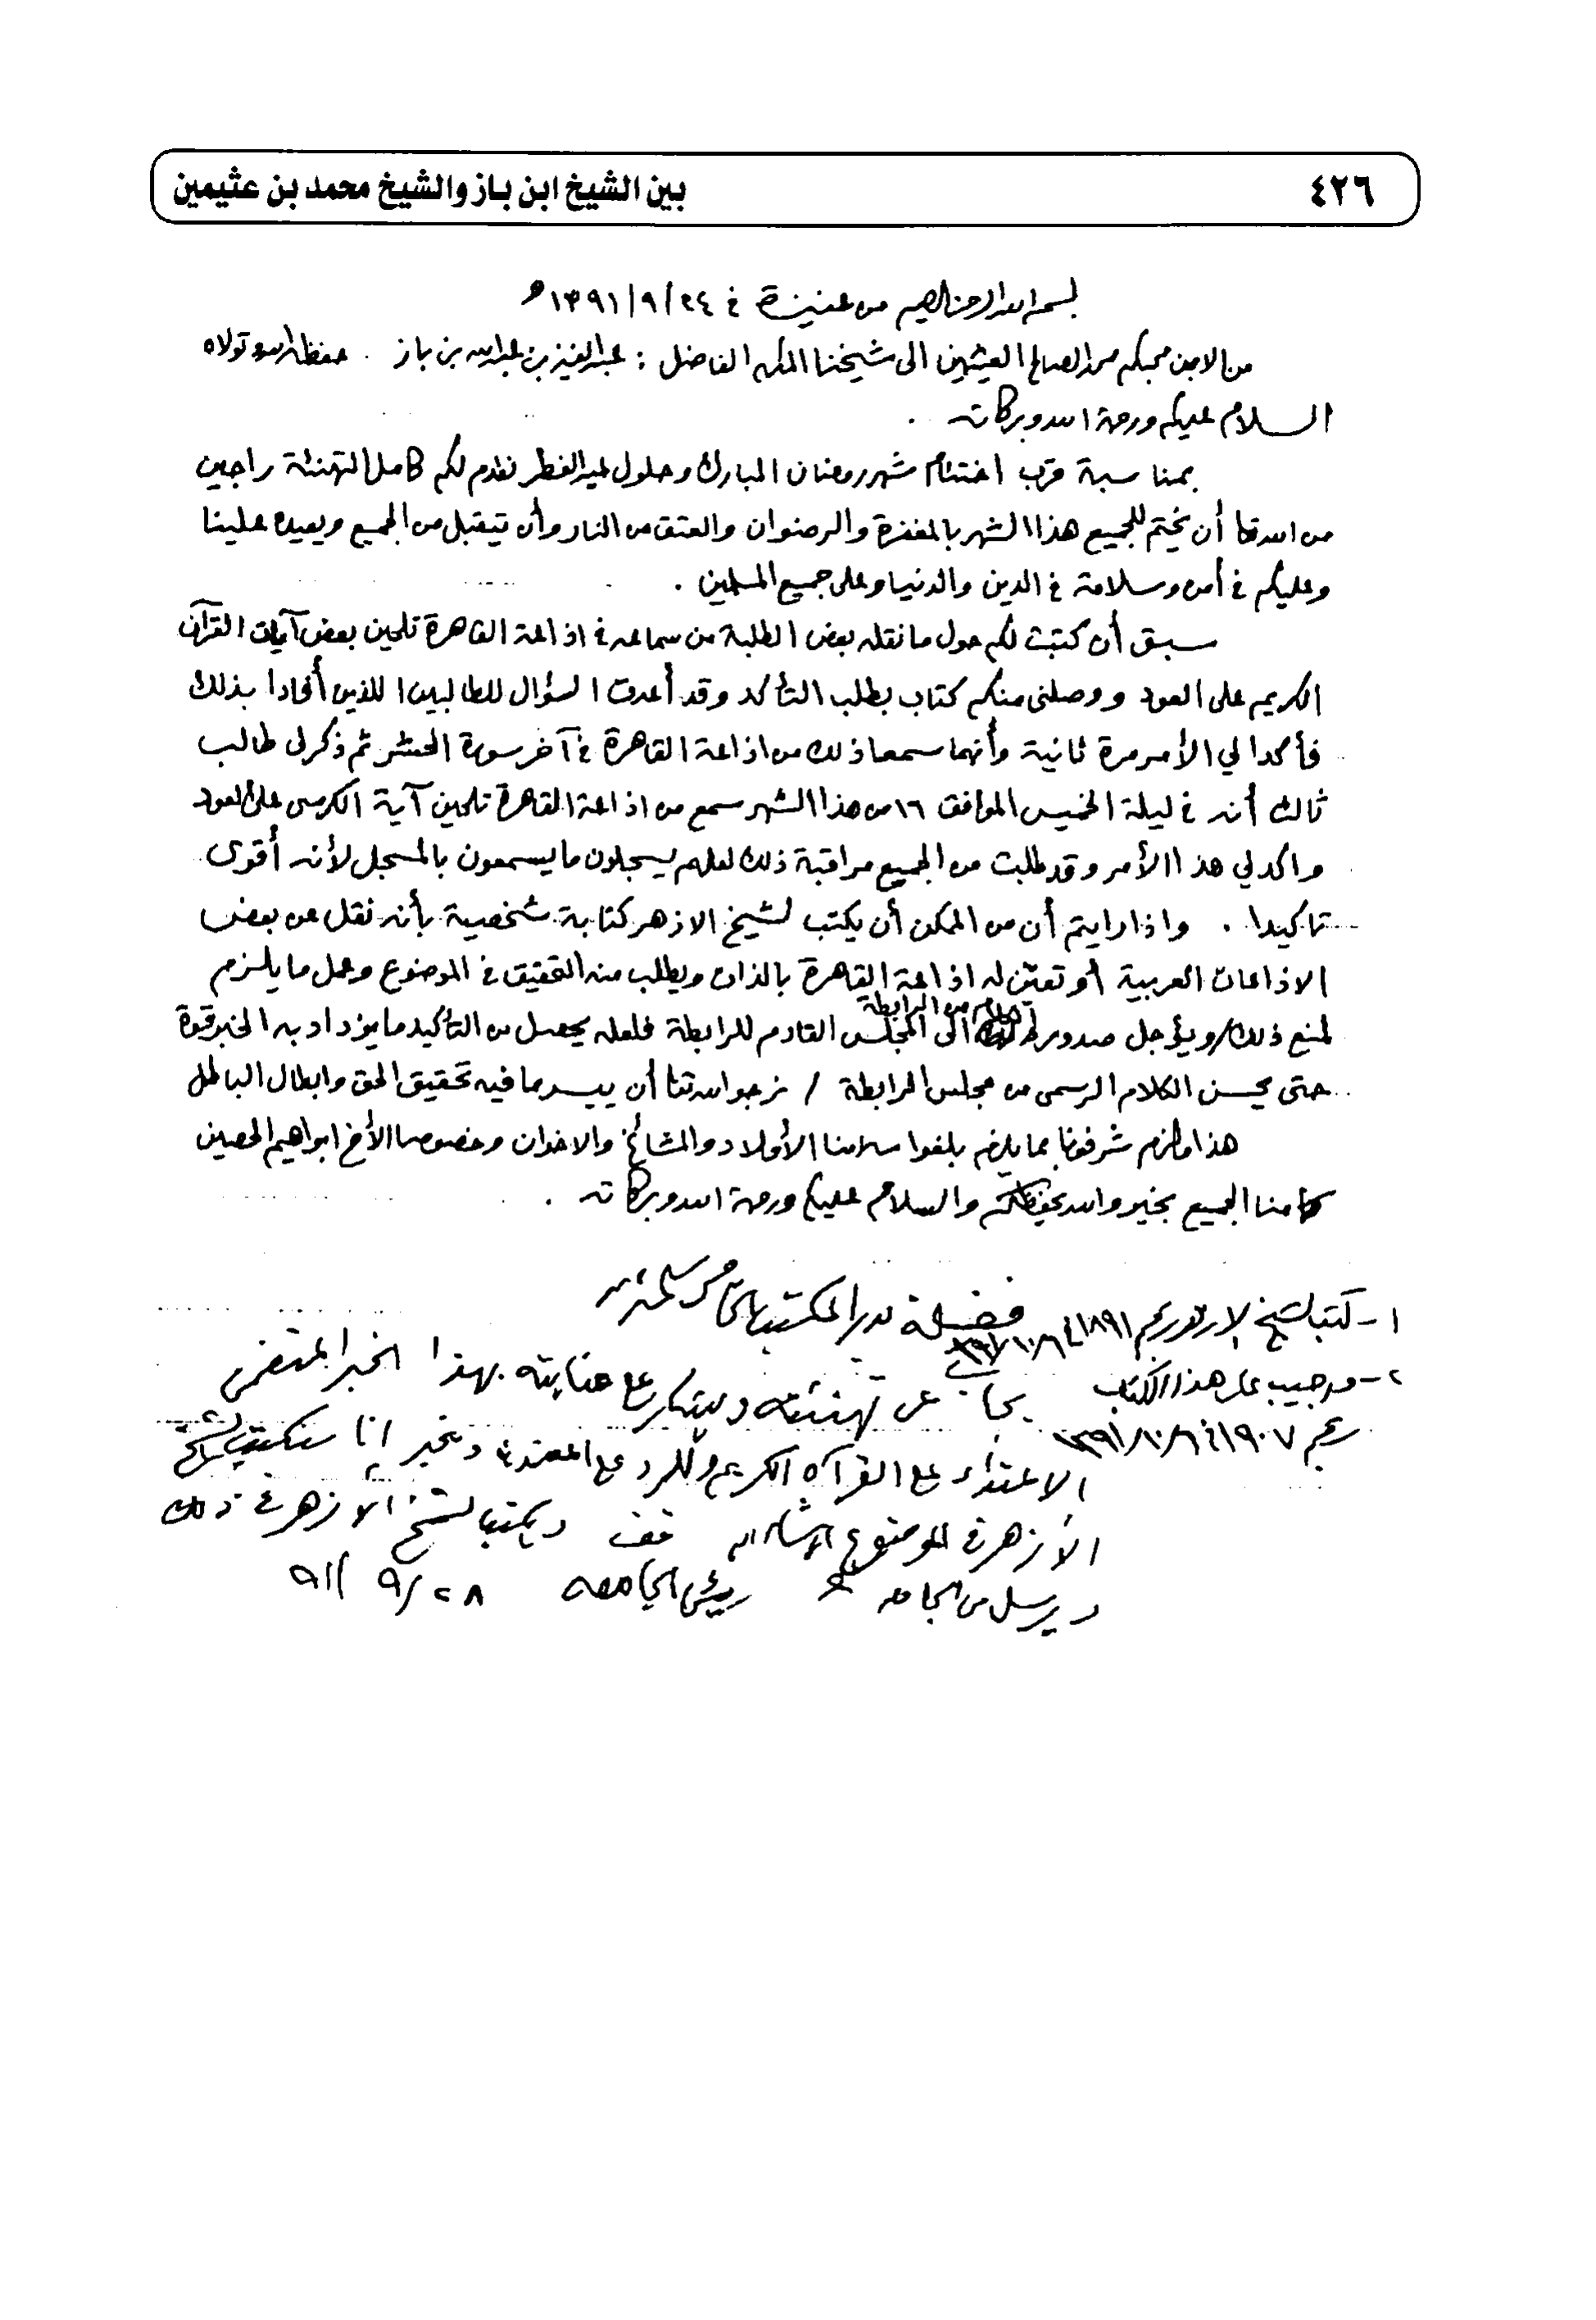 ٤٢٦
بين الشيخ ابن باز والشيخ محمد بن عثيمين
بسم الله الرحمن الرحيم من عنيزة في ٢٤/٩/١٣٩١هـ
من الابن محبكم محمد الصالح العثيمين الى شيخنا المكرم الفاضل : عبدالعزيز بن عبدالله بن باز حفظه الله وتولاه
السلام عليكم ورحمة الله وبركاته .
بمناسبة قرب اختتام شهر رمضان المبارك وحلول عيد الفطر نقدم لكم كامل التهنئة راجين
من الله تعا أن يختم للجميع هذا الشهر بالمغفرة والرضوان والعتق من النار وأن يتقبل من الجميع ويعيده علينا
وعليكم في أمن وسلامة في الدين والدنيا وعلى جميع المسلمين .
سبق أن كتبت لكم حول ما نقله بعض الطلبة من سماعه في اذاعة القاهرة تلحين بعض آيات القرآن
الكريم على العود ووصلني منكم كتاب بطلب التأكد وقد أعدت السؤال للطالبين اللذين أفادا بذلك
فأكدا لي الأمر مرة ثانية وأنهما سمعا ذلك من اذاعة القاهرة في آخر سورة الحشر ثم ذكر لي طالب
ثالث أنه في ليلة الخميس الموافق ١٦ من هذا الشهر سمع من اذاعة القاهرة تلحين آية الكرسي على العود
واكد لي هذا الأمر وقد طلبت من الجميع مراقبة ذلك لعلهم يسجلون ما يسمعون بالمسجل لأنه أقوى
تاكيدا . واذا رايتم أن من الممكن أن يكتب لشيخ الازهر كتابة شخصية بأنه نقل عن بعض
الاذاعات العربية أو تعين له اذاعة القاهرة بالذات ويطلب منه التحقيق في الموضوع وعمل ما يلزم
لمنع ذلك/ ويؤجل صدور كلام من الرابطة الى المجلس القادم للرابطة فلعله يحصل من التأكيد ما يزداد به الخبر قوة
حتى يحسن الكلام الرسمى من مجلس الرابطة / نرجو الله تعا أن ييسر ما فيه تحقيق الحق وابطال الباطل
هذا ما لزم شرفونا بما يلزم بلغوا سلامنا الأولاد والمشائخ والاخوان وخصوصا الأخ ابراهيم الحصين
كما منا الجميع بخير والله يحفظكم والسلام عليكم ورحمة الله وبركاته .
١- كتب لشيخ الازهر برقم ١٨٩١
فضيلة مدير المكتب
٢- وجيب على هذا الكتاب
برقم ١٩٠٧
يجاب عن تهنئته ويشكر على عنايته بهذا الخبر المتضمن
الاعتداء على القرآن الكريم وللرد على المعتدين ونخبر انا سنكتب لشيخ
الأزهر في الموضوع المشار اليه ويكتب لشيخ الأزهر في ذلك
ويرسل من الجامعة رئيس الجامعه ٢٨/٩/٩١